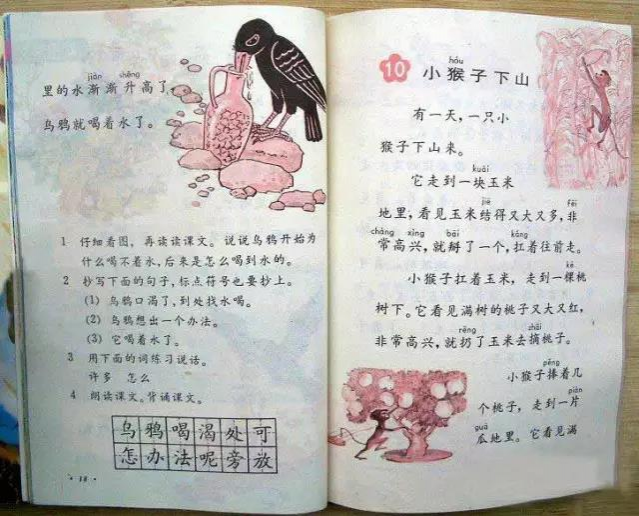 jiàn shēng
里的水渐渐升高了,
乌鸦就喝着水了。
1 仔细看图，再读读课文。说说乌鸦开始为
什么喝不着水,后来是怎么喝到水的。
2 抄写下面的句子,标点符号也要抄上。
(1) 乌鸦口渴了,到处找水喝。
(2) 乌鸦想出一个办法。
(3) 它喝着水了。
3 用下面的词练习说话。
许多 怎么
4 朗读课文。背诵课文。
乌鸦喝渴处可
怎办法呢旁放
· 38 ·
hóu
10 小猴子下山
有一天，一只小
猴子下山来。
kuài
它走到一块玉米
jiē fēi
地里，看见玉米结得又大又多，非
cháng xìng bāi káng
常高兴，就掰了一个，扛着往前走。
kē
小猴子扛着玉米，走到一棵桃
树下。它看见满树的桃子又大又红，
rēng zhāi
非常高兴，就扔了玉米去摘桃子。
pěng
小猴子捧着几
piàn
个桃子，走到一片
guā
瓜地里。它看见满